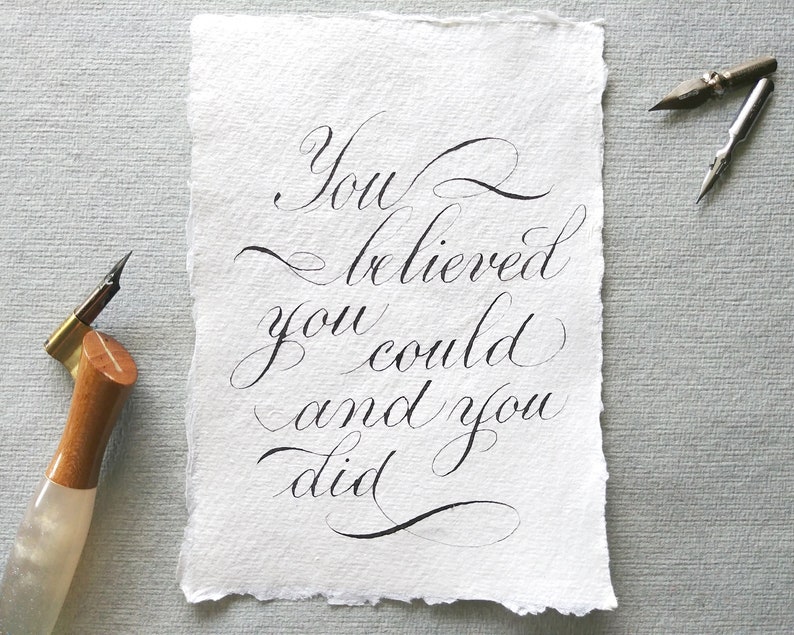 You
believed
you
could
and you
did